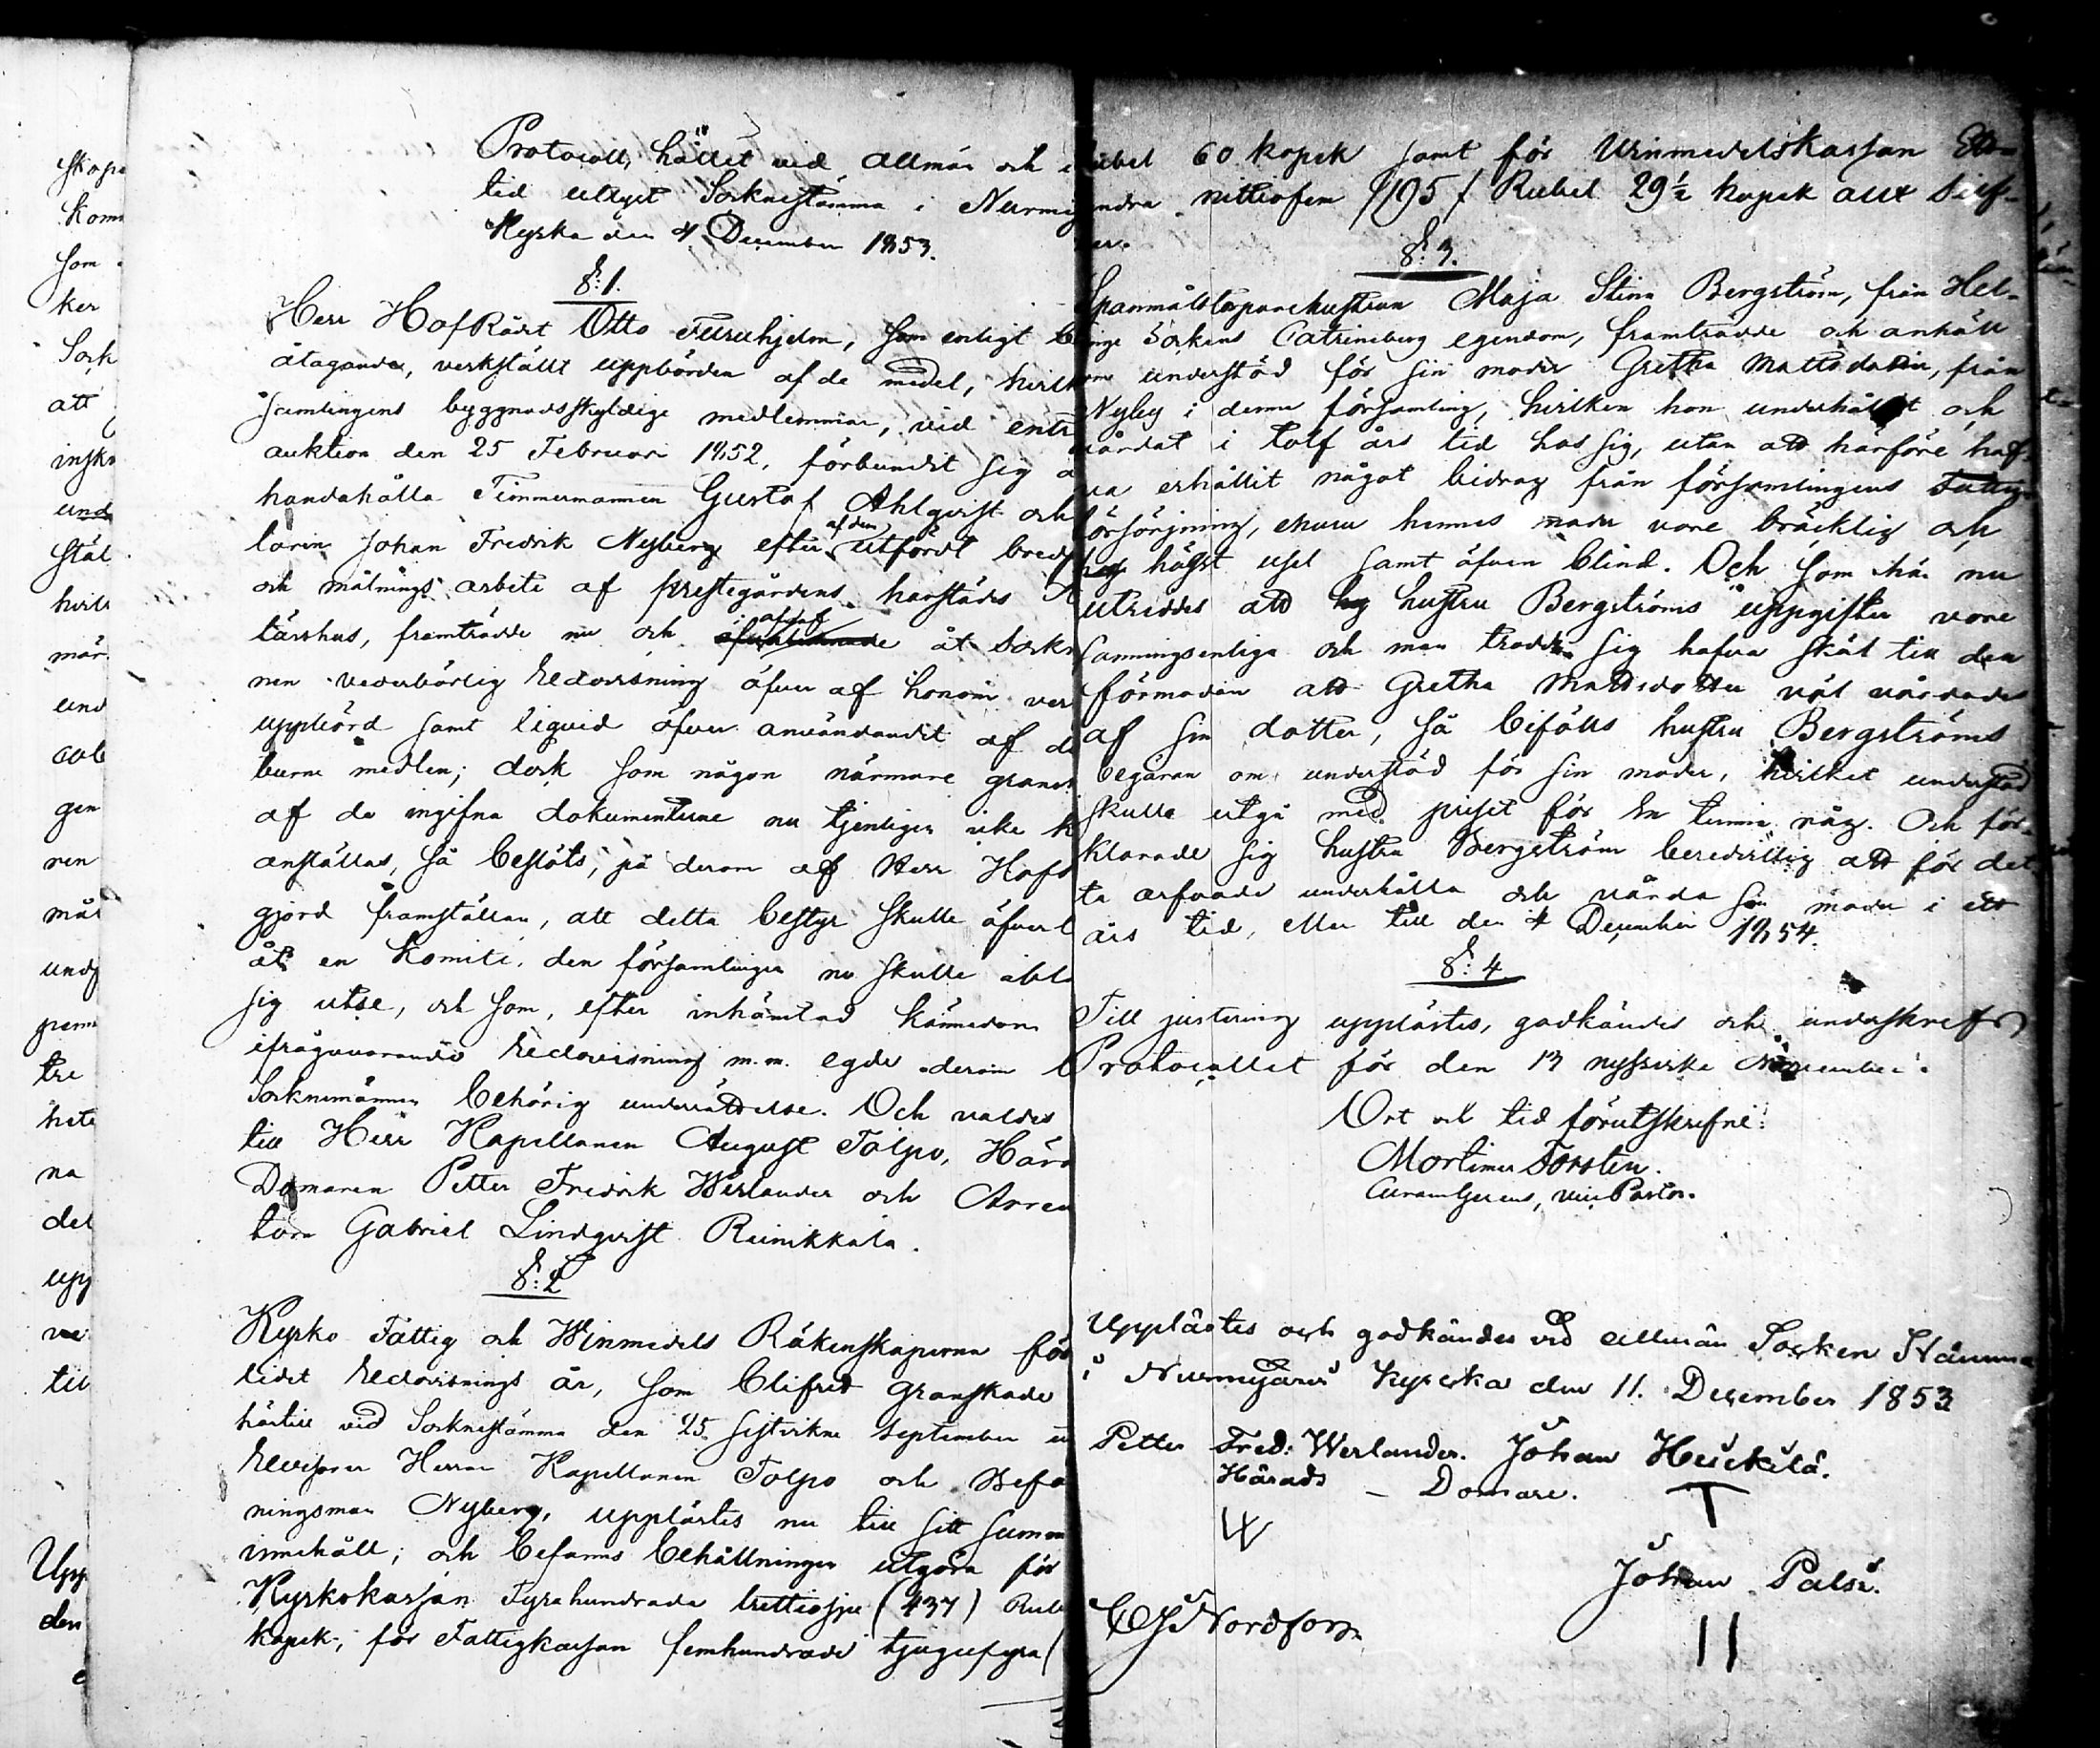 skape
kom
som
ker
Sock
att
insk
und
stäl
hvilk
män
und
gen
nen
mål
und
tre
hete
na
del
upp
ve
til
Upp
den
Protocoll, hållet vid allmän och i
tid utlyst Socknestämma i Nurmij
Kyrka den 4 December 1853.
§: 1.
Herr HofRådt Otto Furuhjelm, som enligt
åtagande, verkställt uppbörden af de medel, hvilk
samlingens byggnadsskyldige medlemmar, vid entr
auktion den 25 Februari 1852, förbundit sig a
handahålla Timmermannen Gustaf Ahlqvist och
larin Johan Fredrik Nyberg efter af dem utfördt
och målnings arbete af prestegårdens harstädes
tärshus, framträdde nu och aflade åt Sockn
nen vederbörlig Redovisning öfver af honom ver
uppbörd samt liquid öfver användandet af de
burne medlen; dock som någon närmare gransk
af de ingifna dokumenterne nu tjenligen icke k
anställas, så beslöts, på derom af Herr Hofr
gjord framställan, att detta bestyr skulle öfverl
åt en Komité, den församlingen nu skulle
sig utse, och som, efter inhämtad kännedom
ifrågavarande Redovisning m.m. egde derom
Socknemännen behörig underrättelse. Och valdes
till Herr Kapellanen August Tolpo, Härads
Domaren Petter Fredrik Werlander och Arren
torn Gabriel Lindqvist Reinikkala.
§: 2
Kyrko Fattig och Winmedels Räkenskaperna för
lidet Redovisnings år, som blifvit granskade
härtill vid Socknestämma den 25 sistvikne September
Revisorer Herrar Kapellanen Tolpo och Befa
ningsman Nyberg, upplästes nu till sitt summ
innehåll; och befanns behållningen utgöra för
Kyrkokassan Fyrahundrade trettiosju (437) Rub
kopek; för Fattigkassan femhundrade tjugufyra (
ubel 60 kopek samt för Winmedelskassan Ett
undra nittiofem /195/ Rubel 29½ kopek allt silf-
er.
§: 3.
Spanmålstorparehustrun Maja Stina Bergström, från Hel-
inge Sockens Catrineberg egendom, framträdde och anhöll
om understöd för sin moder Gretha Mattsdotter, från
Nyby i denna församling, hvilken hon underhållit och
vårdat i tolf års tid hos sig, utan att härföre haf-
va erhållit något bidrag från församlingens Fattig-
försörjning, ehuru hennes moder vore bräcklig och
högst usel samt äfven blind. Och som här nu
utreddes att hustru Bergströms uppgifter vore
sanningsenliga och man trodde sig hafva skäl till den
förmodan att Gretha Mattsdotter väl vårdades
af sin dotter, så bifölls hustru Bergströms
begäran om understöd för sin moder, hvilket understöd
skulle utgå med priset för en tunna råg. Och för-
klarade sig hustru Bergström beredvillig att för det-
ta arfvode underhålla och vårda sin moder i ett
års tid, eller till den 4 December 1854.
§: 4
Till justering upplästes, godkändes och underskrefs
Protocollet för den 13 nyssvikne November.
Ort och tid förutskrefne:
Mortimer Forstén.
Curam Gerens, vice Pastor.
Upplästes och godkändes vid allmän Socken Stämma
i Nurmijärvi Kyrcka den 11. December 1853
Petter Fred: Werlander. Johan Heickilä.
Härads - Domare.
Johan Palsi.
Nordfors